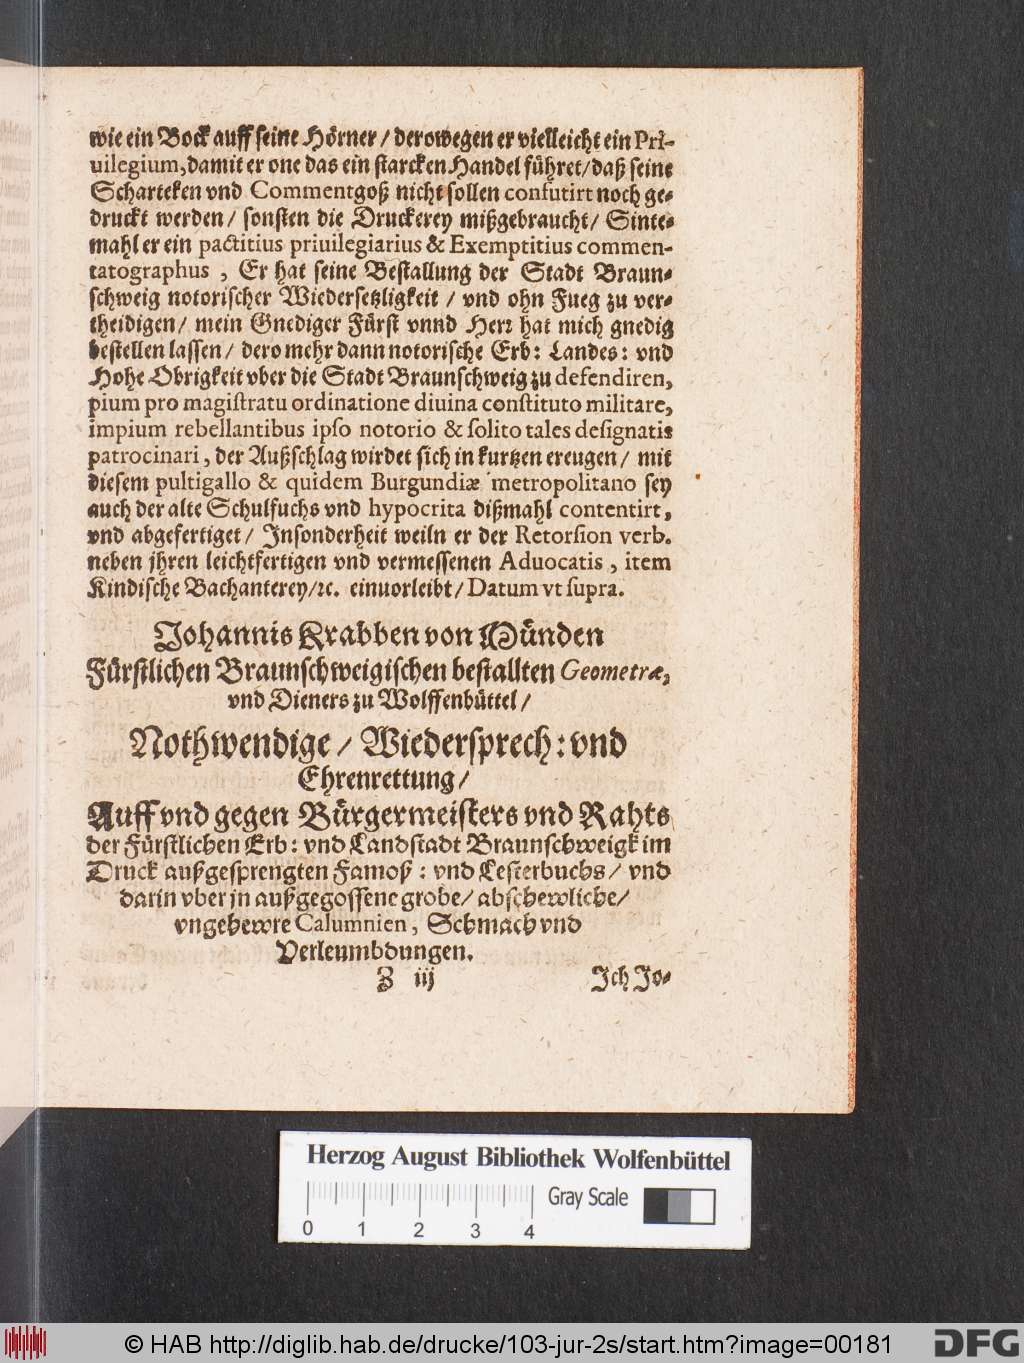 wie ein Bock auff seine Hörner / derowegen er vielleicht ein Pri-
uilegium, damit er one das ein starcken Handel führet / daß seine
Scharteken vnd Commentgoß nicht sollen confutirt noch ge-
druckt werden / sonsten die Druckerey mißgebraucht / Sinte-
mahl er ein pactitius priuilegiarius & Exemptitius commen-
tatographus , Er hat seine Bestallung der Stadt Braun-
schweig notorischer Wiedersetzligkeit / vnd ohn Fueg zu ver-
theidigen / mein Gnediger Fürst vnnd Herr hat mich gnedig
bestellen lassen / dero mehr dann notorische Erb: Landes: vnd
Hohe Obrigkeit vber die Stadt Braunschweig zu defendiren,
pium pro magistratu ordinatione diuina constituto militare,
impium rebellantibus ipso notorio & solito tales designatis
patrocinari , der Außschlag wirdet sich in kurtzen ereugen / mit
diesem pultigallo & quidem Burgundiæ metropolitano sey
auch der alte Schulfuchs vnd hypocrita dißmahl contentirt,
vnd abgefertiget / Insonderheit weiln er der Retorsion verb.
neben jhren leichtfertigen vnd vermessenen Aduocatis , item
Kindische Bachanterey / ꝛc. einuorleibt / Datum vt supra.
Johannis Krabben von Münden
Fürstlichen Braunschweigischen bestallten Geometræ,
vnd Dieners zu Wolffenbüttel /
Nothwendige / Wiedersprech: vnd
Ehrenrettung /
Auff vnd gegen Bürgermeisters vnd Rahts
der Fürstlichen Erb: vnd Landstadt Braunschweigk im
Druck außgesprengten Famoß : vnd Lesterbuchs / vnd
darin vber jn außgegossene grobe / abschewliche /
vngehewre Calumnien, Schmach vnd
Verleumbdungen.
Z iij Ich Jo-
Herzog August Bibliothek Wolfenbüttel
Gray Scale
0 1 2 3 4
© HAB http://diglib.hab.de/drucke/103-jur-2s/start.htm?image=00181 DFG